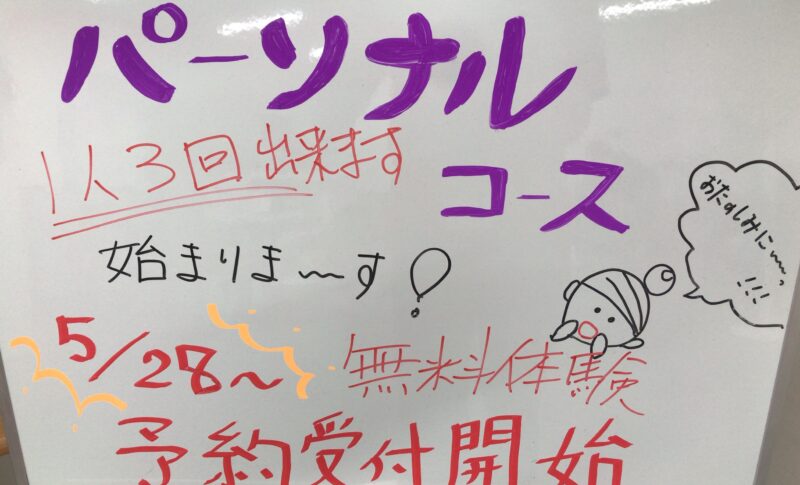 パーソナル
コース
1人3回出来ます
始まりま〜す!
おたのしみに〜〜っ!!!
5/28〜 無料体験
予約受付開始